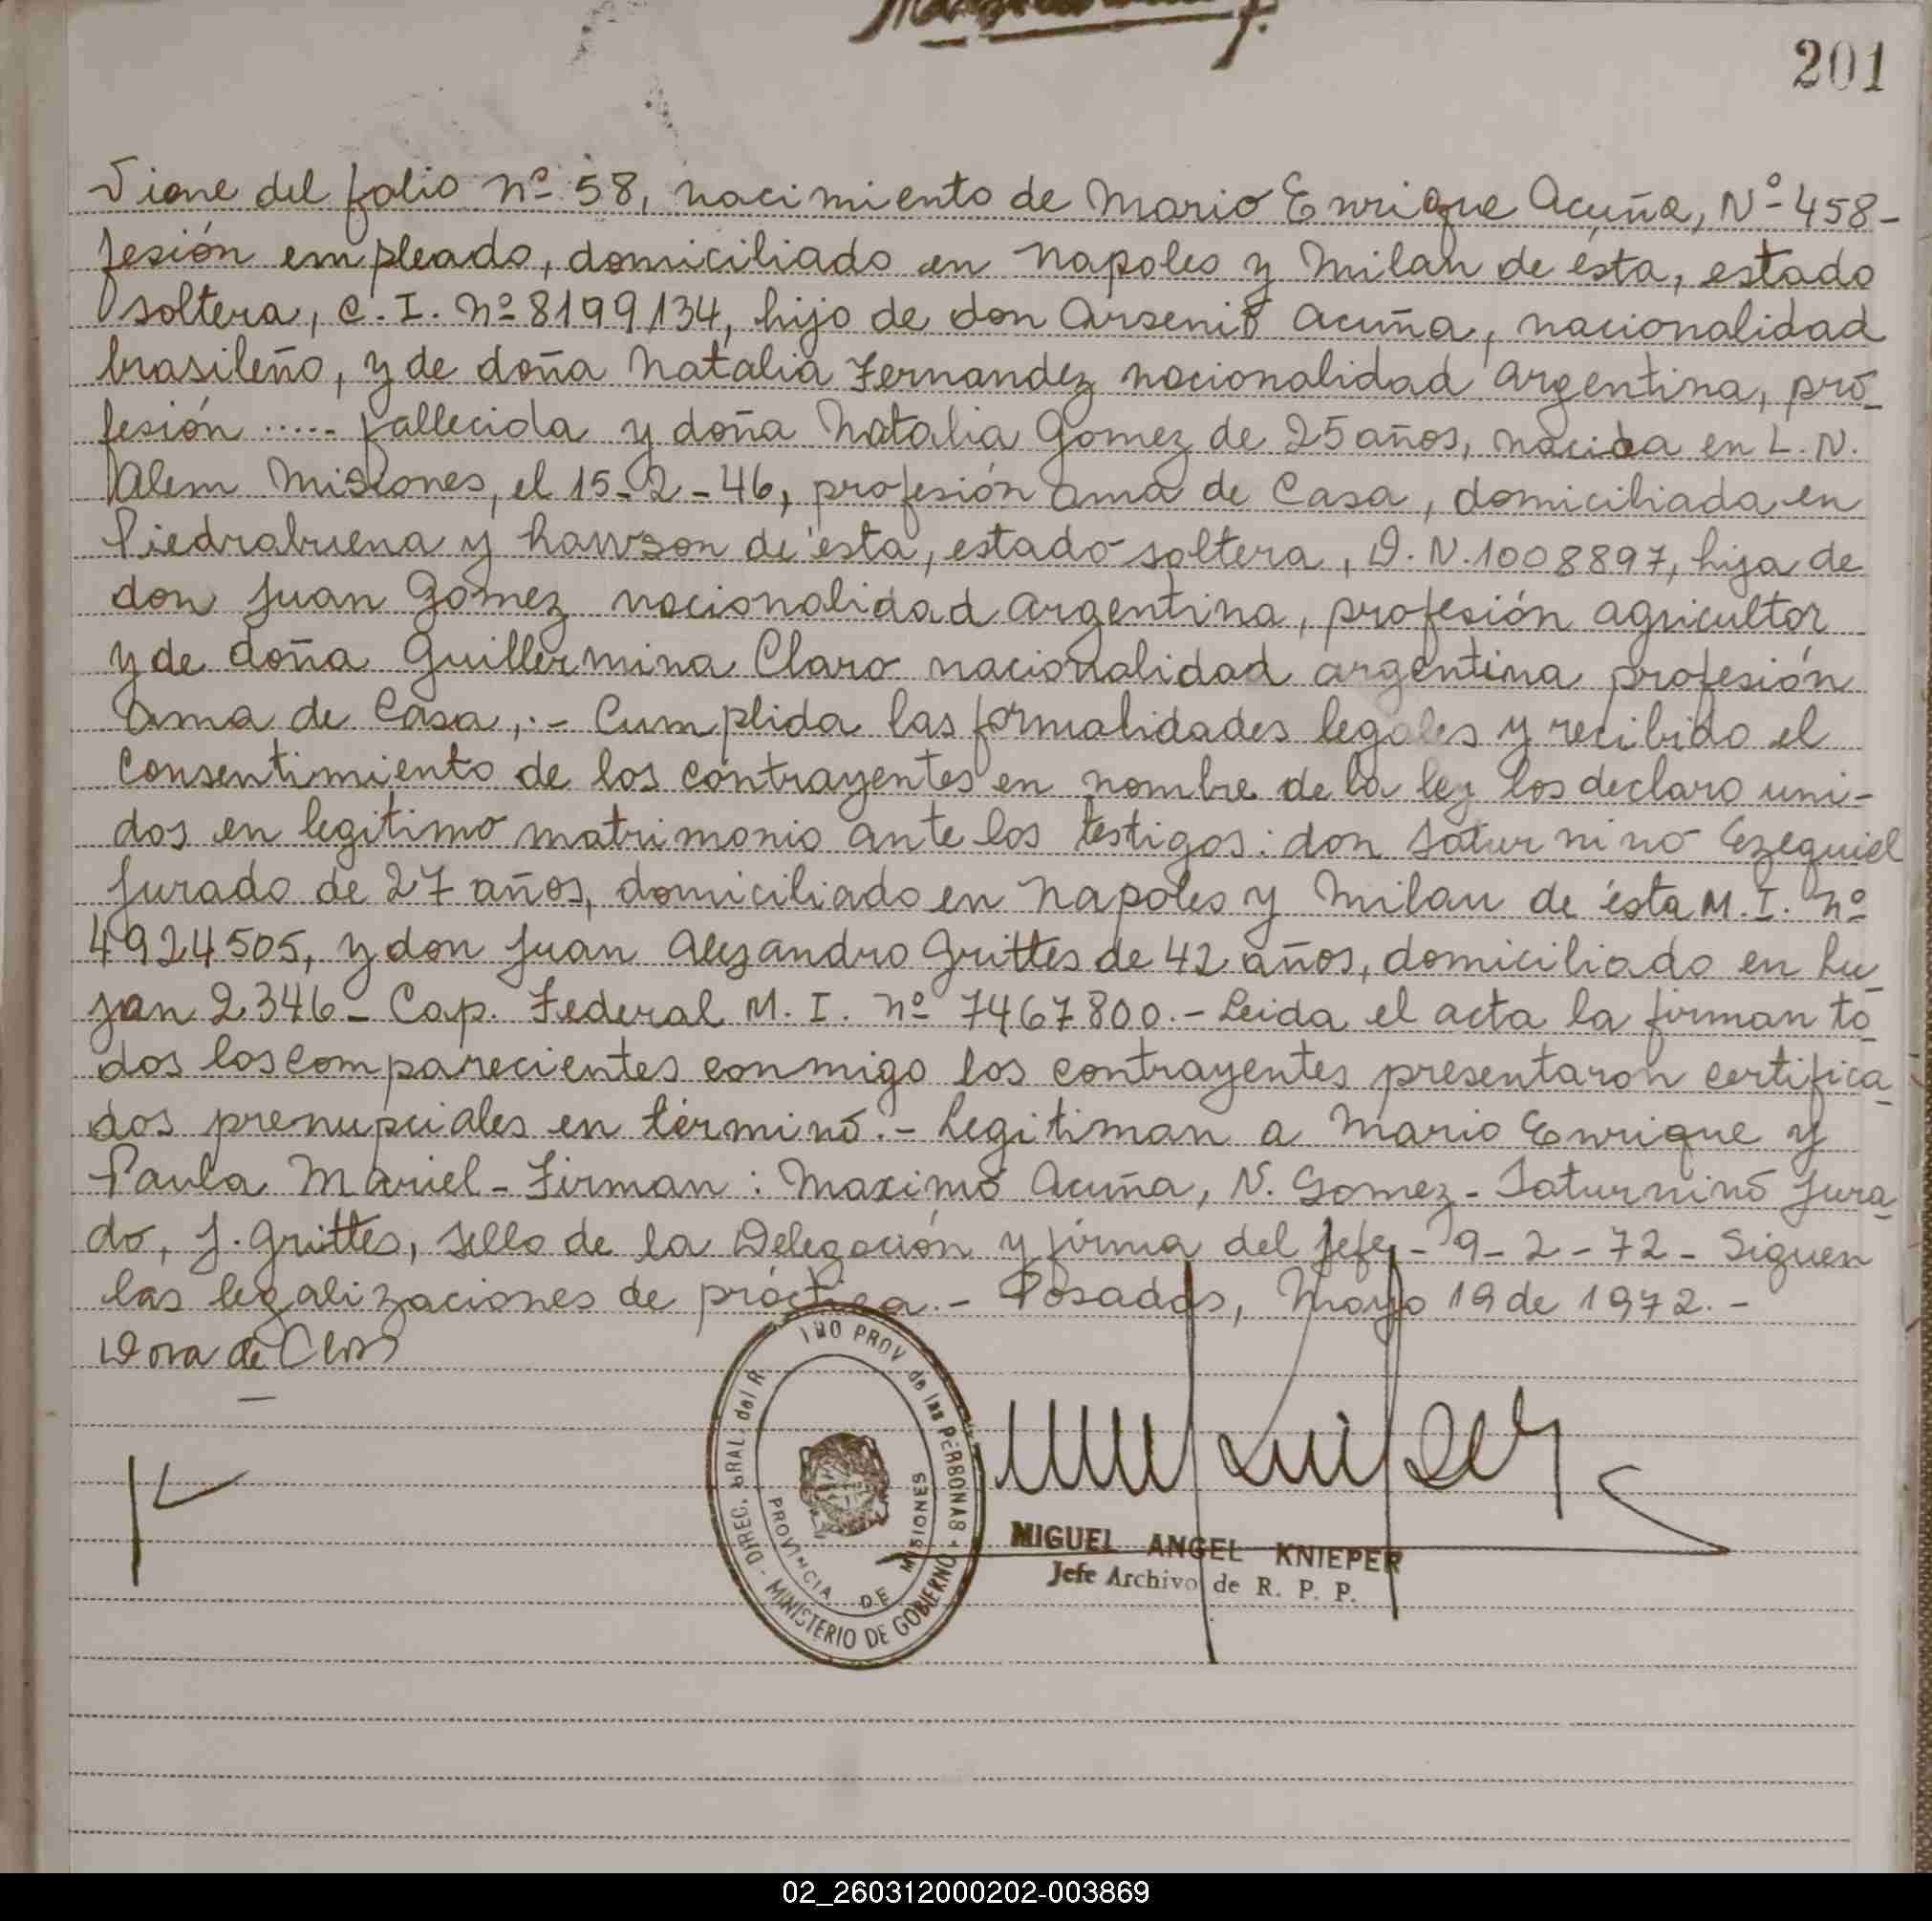 201
Viene del folio Nº 58, nacimiento de Mario Enrique Acuña, Nº 458-
fesión empleado, domiciliado en Napoles y Milan de ésta, estado
soltera, C. I. Nº 8199134, hijo de don Arsenio Acuña, nacionalidad
brasileño, y de doña Natalia Fernandez nacionalidad argentina, pro-
fesión ..... fallecida y doña Natalia Gomez de 25 años, nacida en L. N.
Alem Misiones, el 15-2-46, profesión ama de casa, domiciliada en
Piedrabuena y Rawson de ésta, estado soltera, D. N. 1008897, hija de
don Juan Gomez nacionalidad argentina, profesión agricultor
y de doña Guillermina Claro nacionalidad argentina profesión
ama de casa, .- Cumplida las formalidades legales y recibido el
consentimiento de los contrayentes en nombre de la ley los declaro uni-
dos en legitimo matrimonio ante los testigos: don Saturnino Ezequiel
Jurado de 27 años, domiciliado en Napoles y Milan de ésta M. I. Nº
4924505, y don Juan Alejandro Grittes de 42 años, domiciliado en Lu-
jan 2346- Cap. Federal M. I. Nº 7467800.- Leida el acta la firman to-
dos los comparecientes conmigo los contrayentes presentaron certifica-
dos prenupciales en término.- Legitiman a Mario Enrique y
Paula Mariel- Firman: Maximo Acuña, N. Gomez- Saturnino Jura-
do, J. Grittes, sello de la Delegación y firma del Jefe- 9-2-72- Siguen
las legalizaciones de práctica.- Posadas, Mayo 19 de 1972.-
Dora de
DIREC. GRAL. del R. PROV. de las PERSONAS - MINISTERIO DE GOBIERNO
PROVINCIA DE MISIONES
MIGUEL ANGEL KNIEPER
Jefe Archivo de R. P. P.
02_260312000202-003869